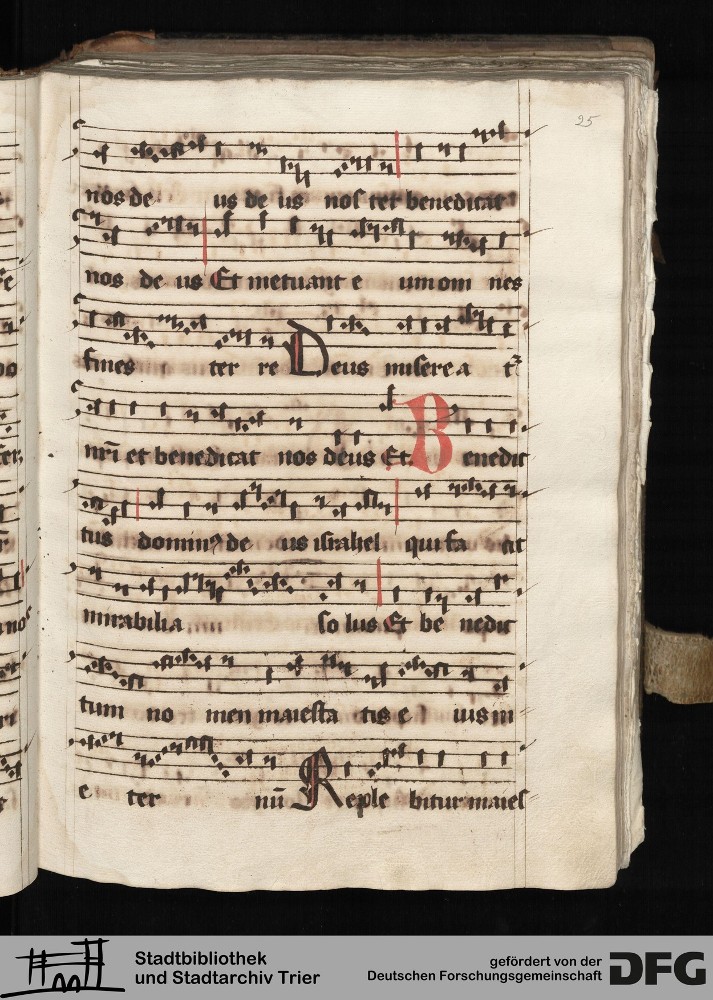 25
nos de us de us nos ter benedicat
nos de us Et metuant e um om nes
fines ter re Deus miserea t᷑
nr̄i et benedicat nos deus Et. Benedic
tus dominꝰ de us israhel qui fa cit
mirabilia so lus Et be nedic
tum no men maiesta tis e ius in
e ter nū Reple bitur maies
Stadtbibliothek
und Stadtarchiv Trier
gefördert von der
Deutschen Forschungsgemeinschaft
DFG